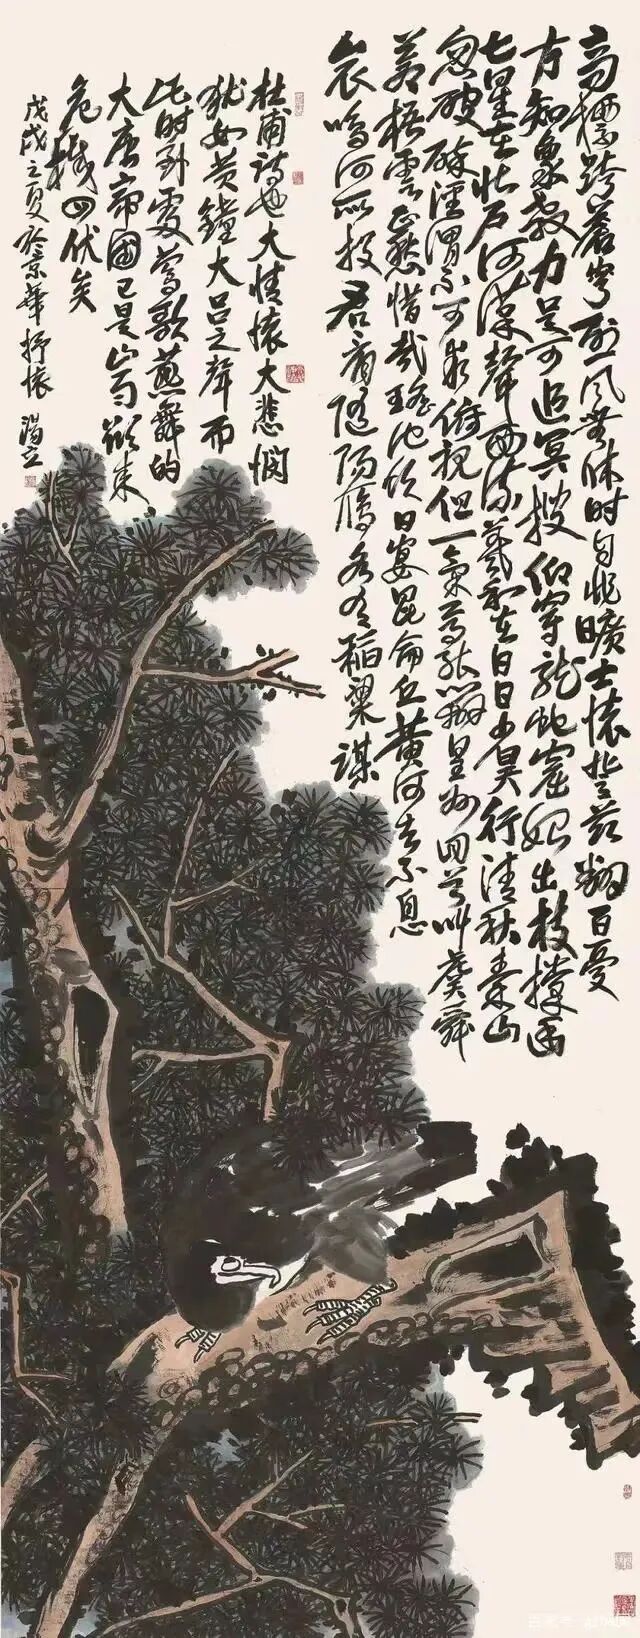 高標跨蒼穹烈風無休時自非曠士懷登茲翻百憂
方知象教力足可追冥搜仰穿龍蛇窟始出枝撐幽
七星在北戶河漢聲西流羲和在白日少昊行清秋秦山
忽破碎涇渭不可求俯視但一氣焉能辨皇州回首叫虞舜
蒼梧雲正愁惜哉瑤池飲日宴昆侖丘黃河去不息
哀鳴何所投君看隨陽雁各有稻粱謀
杜甫詩也大情懷大悲憫
猶如黃鐘大呂之聲而
此時到處鶯歌燕舞的
大唐帝國已是山雨欲來
危機四伏矣
戊戌之夏於京華抒懷 湯立